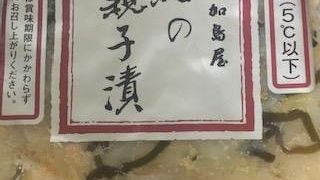 加島屋
の
親子漬
(5℃以下)
賞味期限にかかわらず
お召し上がりください。